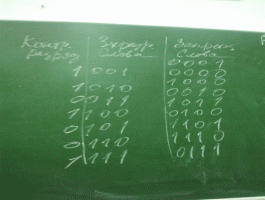 Контр.
разряд
1
1
0
1
0
0
1
3хразр.
слова
001
010
011
100
101
110
111
Запрещ.
слова
0001
0000
1000
0010
1011
0100
1101
1110
0111